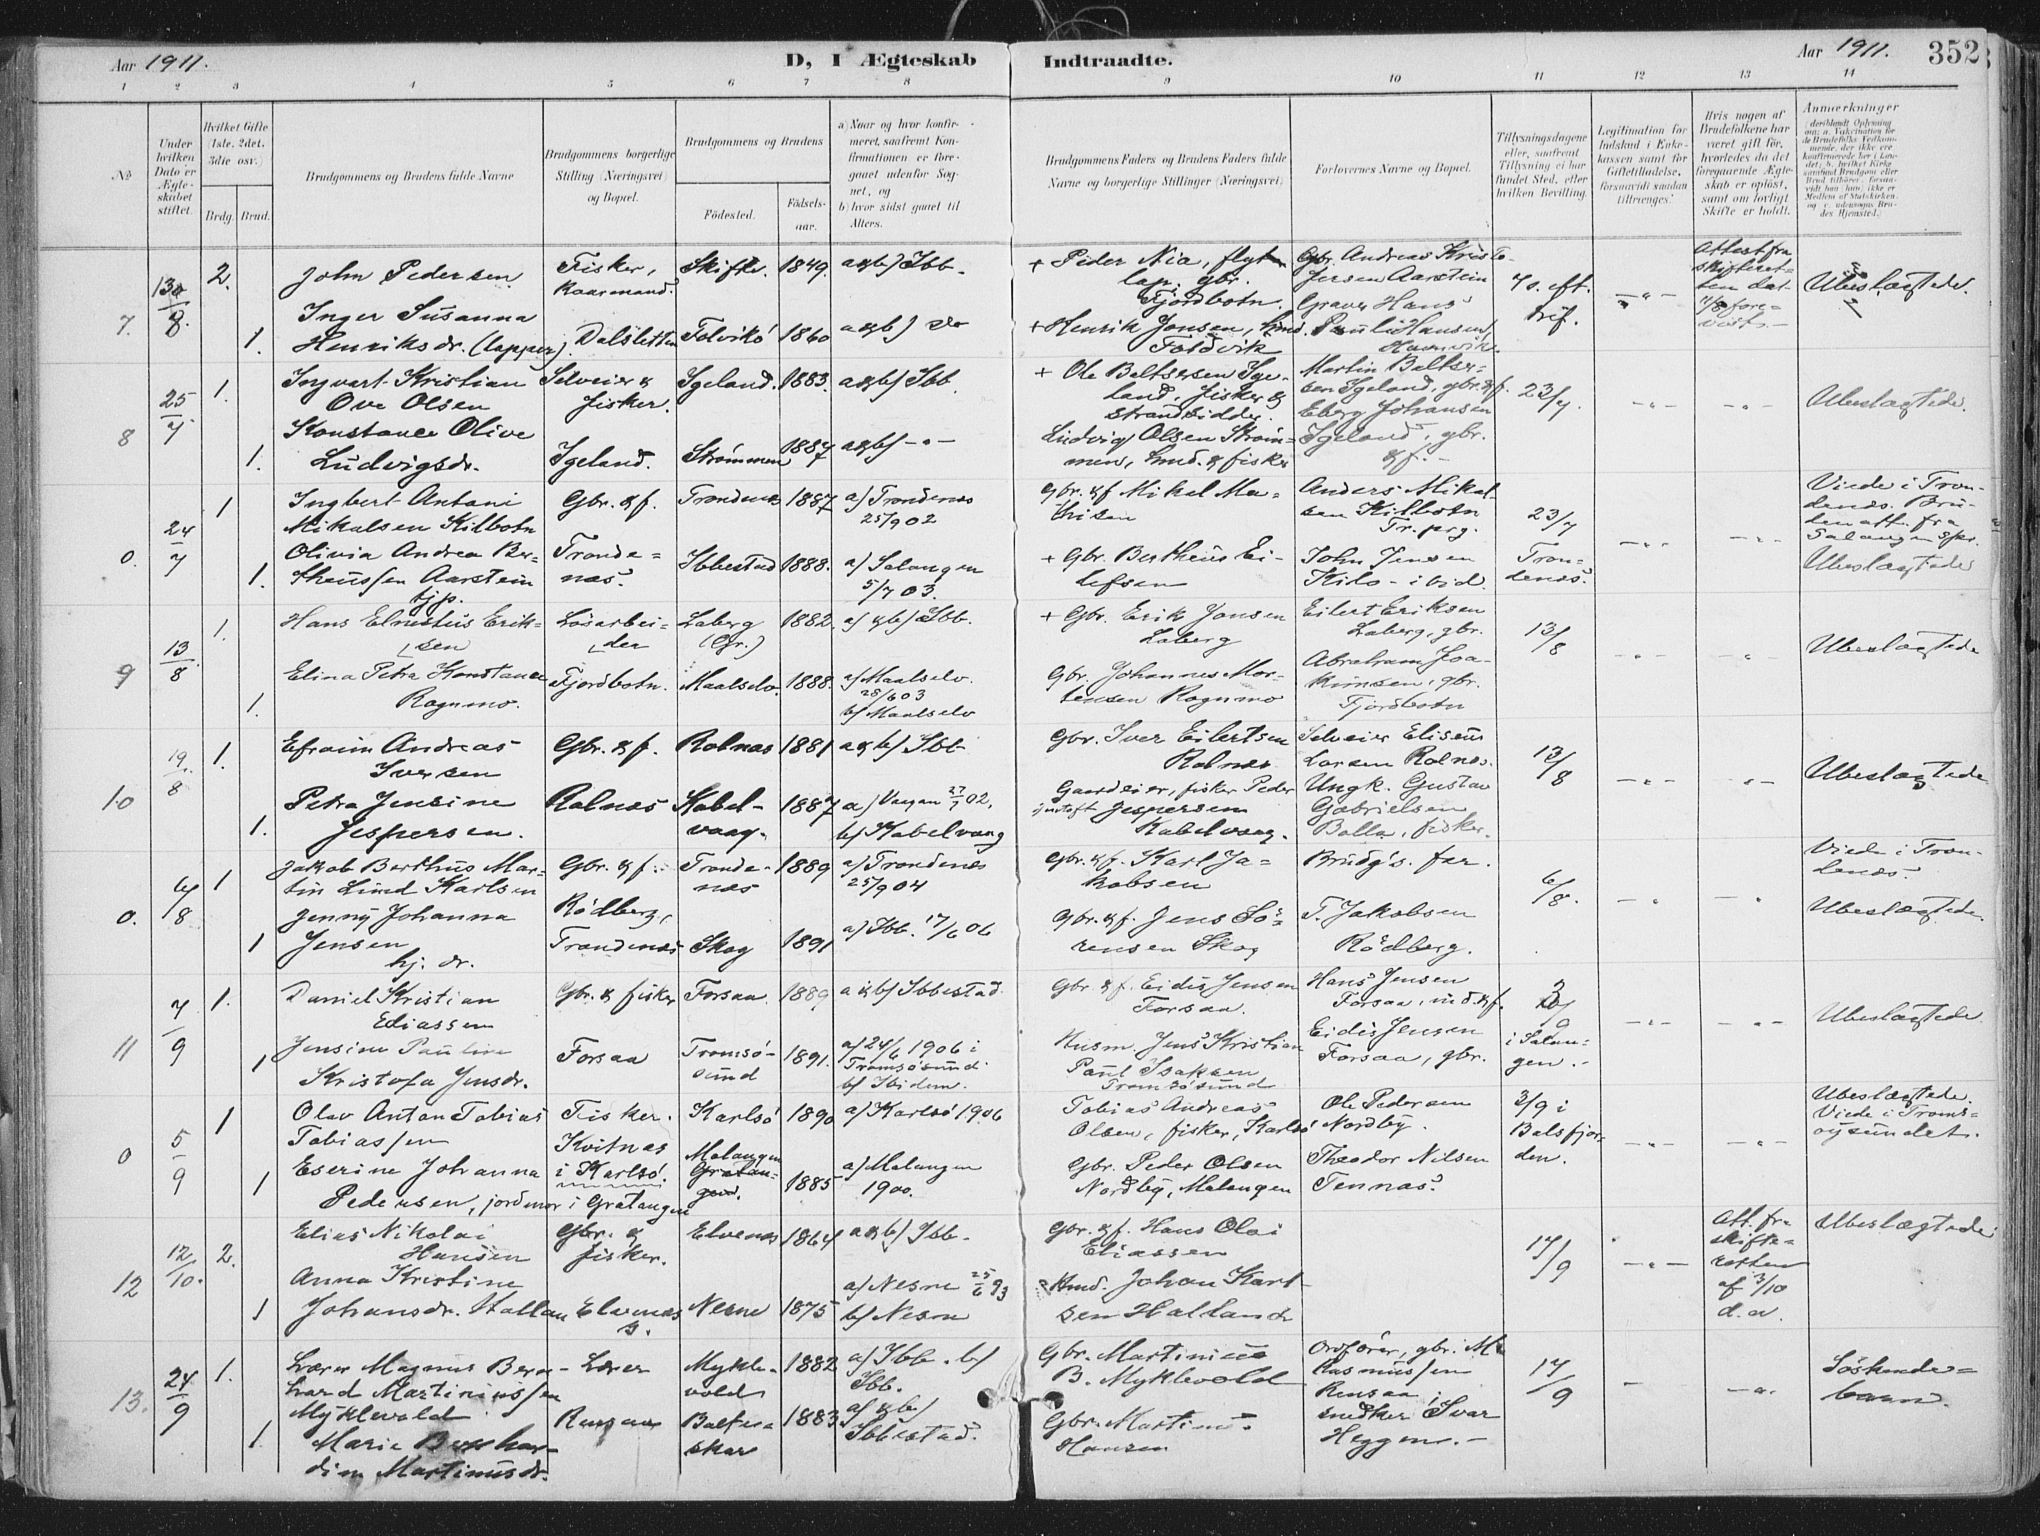 Aar 1911.
D, I Ægteskab Indtraadte.
Aar 1911.
352
1 2 3 4 5 6 7 8 9 10 11 12 13 14
No
Under hvilken Dato er Ægteskabet stiftet.
Hvilket Gifte (1ste, 2det, 3die osv.)
Brdg. Brud.
Brudgommens og Brudens fulde Navne
Brudgommens borgerlige Stilling (Næringsvei) og Bopæl.
Brudgommens og Brudens
Födested. Födselsaar.
a) Naar og hvor konfirmeret, saafremt Konfirmationen er foregaaet udenfor Sognet, og
b) hvor sidst gaaet til Alters.
Brudgommens Faders og Brudens Faders fulde Navne og borgerlige Stillinger (Næringsvei)
Forlovernes Navne og Bopæl.
Tillysningsdagene eller, saafremt Tillysning ei har fundet Sted, efter hvilken Bevilling.
Legitimation for Indskud i Enkekassen samt for Giftetilladelse, forsaavidt saadan tiltrænges.
Hvis nogen af Brudefolkene har været gift för, hvorledes da det foregaaende Ægteskab er oplöst, samt om lovligt Skifte er holdt.
Anmærkninger
7.
2.
John Pedersen
Fisker, Kaarmand.
Skifte. 1849. a&b) Ibb.
+ Peder Nia, flytlap, gbr. Fjordbotn.
Gbr. Andreas Kristojersen Aarstein
7 s. eft. tref.
Attest fra skifteretten dat. fore-
Ubeslægtede.
1.
Inger Susanna Henriksdr. (lapper).
Dalsletten Foldvik 1860 a&b) do
+ Henrik Jonsen, hmd. Foldvik
Graver Hans Pauli Hansen, Havnvik.
8
25/7
1.
Ingvart Kristian Ove Olsen
Selveier & fisker.
Igeland. 1883. a&b) Ibb.
+ Ole Beltsersen Igeland, fisker & strandsidder.
Martin Beltsersen Igeland, gbr. & f.
23/7.
Ubeslægtede.
1.
Konstance Olive Ludvigsdr.
Igeland. Strömmen 1887 a&b) - " -
Ludvig Olsen Strömmen, hmd. & fisker
Eberg Johansen Igeland, gbr. & f. -
0.
24/7
1
Ingbert Antoni Mikalsen Kilbotn
Gbr. & f. Trondenæs 1887 a) Trondenæs 25/9 02
Gbr. & f. Mikal Mathisen
Anders Mikalsen Kilbotn Tr. prg.
23/7 Trondenæs.
Viede i Trondenæs. Bruden att. fra Salangen spr. Ubeslægtede
1.
Olivia Andrea Bertheussen Aarstein tjp.
Trondenæs. Ibbestad 1888. a) Salangen 5/7 03.
+ Gbr. Bertheus Eilefsen
John Jensen Kilb - ibid.
9
13/8
1.
Hans Elnestus Eriksen
Lösarbeider
Laberg (Gr.) 1882. a) & b) Ibb.
+ Gbr. Erik Jonsen Laberg
Eilert Eriksen Laberg, gbr.
13/8
Ubeslægtede
1.
Elina Petra Konstance Rognmo.
Fjordbotn. Maalselv. 1888. a) Maalselv. 28/6 03 b) Maalselv
Gbr. Johannes Mortensen Rognmo
Abraham Joakimsen, gbr. Fjordbotn
10
19/8
1.
Efraim Andreas Iversen
Gbr. & f. Rolnæs 1881 a&b) Ibb.
Gbr. Iver Eilertsen Rolnæs
Selveier Eliseus Larsen Rolnæs.
13/8
Ubeslægtede
1.
Petra Jensine Jespersen.
Rolnæs Kabelvaag. 1887 a) Vaagan 27/7 02, b) Kabelvaag
Gaardeier, fisker Peder Jespersen Kabelvaag.
Ungk. Gustav Gabrielsen Bolla, fisker.
0.
6/8
1
Jakob Berthus Martin Lind Karlsen
Gbr. & f. Trondenæs 1889 a) Trondenæs 25/9 04
Gbr. & f. Karl Jakobsen
Brudg's. far.
6/8.
Viede i Trondenæs. Ubeslægtede.
1
Jenny Johanna Jensen hj. dr.
Rödberg, Trondenæs Skog 1891 a) Ibb. 17/6 06
Gbr. & f. Jens Sörensen Skog
T. Jakobsen Rödberg.
11
7/9
1.
Daniel Kristian Ediassen
Gbr. & fisker Forsaa. 1889 a&b) Ibbestad.
Gbr. & f. Eidis Jensen Forsaa.
Hans Jensen Forsaa, ind. & f.
3/9 i Salangen. -
Ubeslægtede
1
Jensine Pauline Kristofa Jensdr.
Forsaa Tromsösund 1891. a) 24/6 1906 i Tromsösund. b) Ibidem.
Husm. Jens Kristian Paul Isaksen Tromsösund
Eidis Jensen Forsaa, gbr.
0
5/9
1
Olav Anton Tobias Tobiassen
Fisker. Karlsö 1890 a) Karlsö 1906
Tobias Andreas Olsen, fisker, Karlsö
Ole Pedersen Nordby.
3/9 i Balsfjorden.
Ubeslægtede. Viede i Tromsöysundet.
1
Eserine Johanna Pedersen, jordmor i Gratangen
Kvitnæs i Karlsö. Malangen Gratangen. 1885 a) Malangen 1900.
Gbr. Peder Olsen Nordby, Malangen
Theodor Nilsen Tennæs.
12
12/10.
2.
Elias Nikolai Hansen
Gbr. & fisker. Elvenes 1864 a&b) Ibb.
Gbr. & f. Hans Olai Eliassen
17/9
Att. fra skifteretten af 3/10 d. a.
Ubeslægtede
1
Anna Kristine Johansdr. Halland
Elvenæs Nesne 1875 a) Nesne 25/6 93 b) Nesne
Hmd. Johan Karlsen Halland
13.
24/9
1.
Lærer Magnus Bernhard Martinussen Myklevold
Lærer Myklevold 1882 a) Ibb. b) Ibb.
Gbr. Martinius B. Myklevold
Ordförer, gbr. M. Rasmussen Rensaa
17/9
Söskendebarn.
1.
Marie Bernhardine Martinusdr.
Rensaa 1883 a) & b) Ibbestad.
Gbr. Martinus Hansen
snedker Ivar Heggen. -